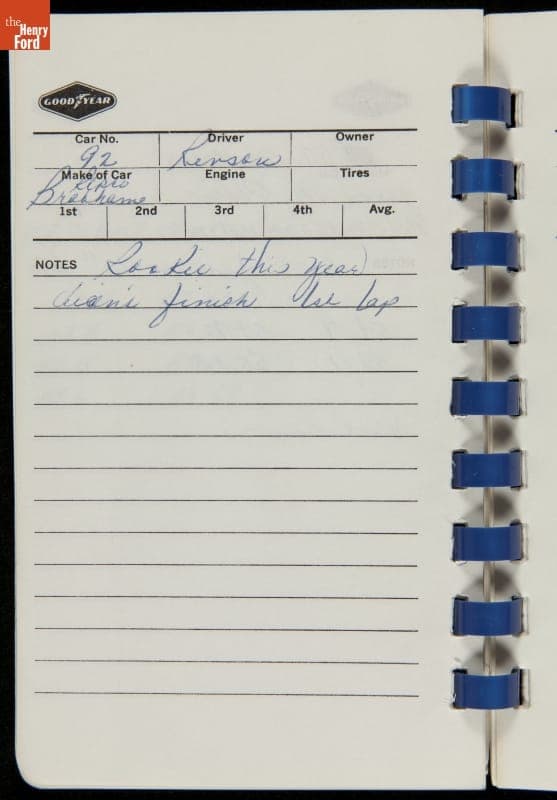 the
Henry
Ford
GOODYEAR
Car No. Driver Owner
92 Revson
Make of Car Engine Tires
Repco
Brabhame
1st 2nd 3rd 4th Avg.
NOTES Rookie this year
didn't finish 1st lap